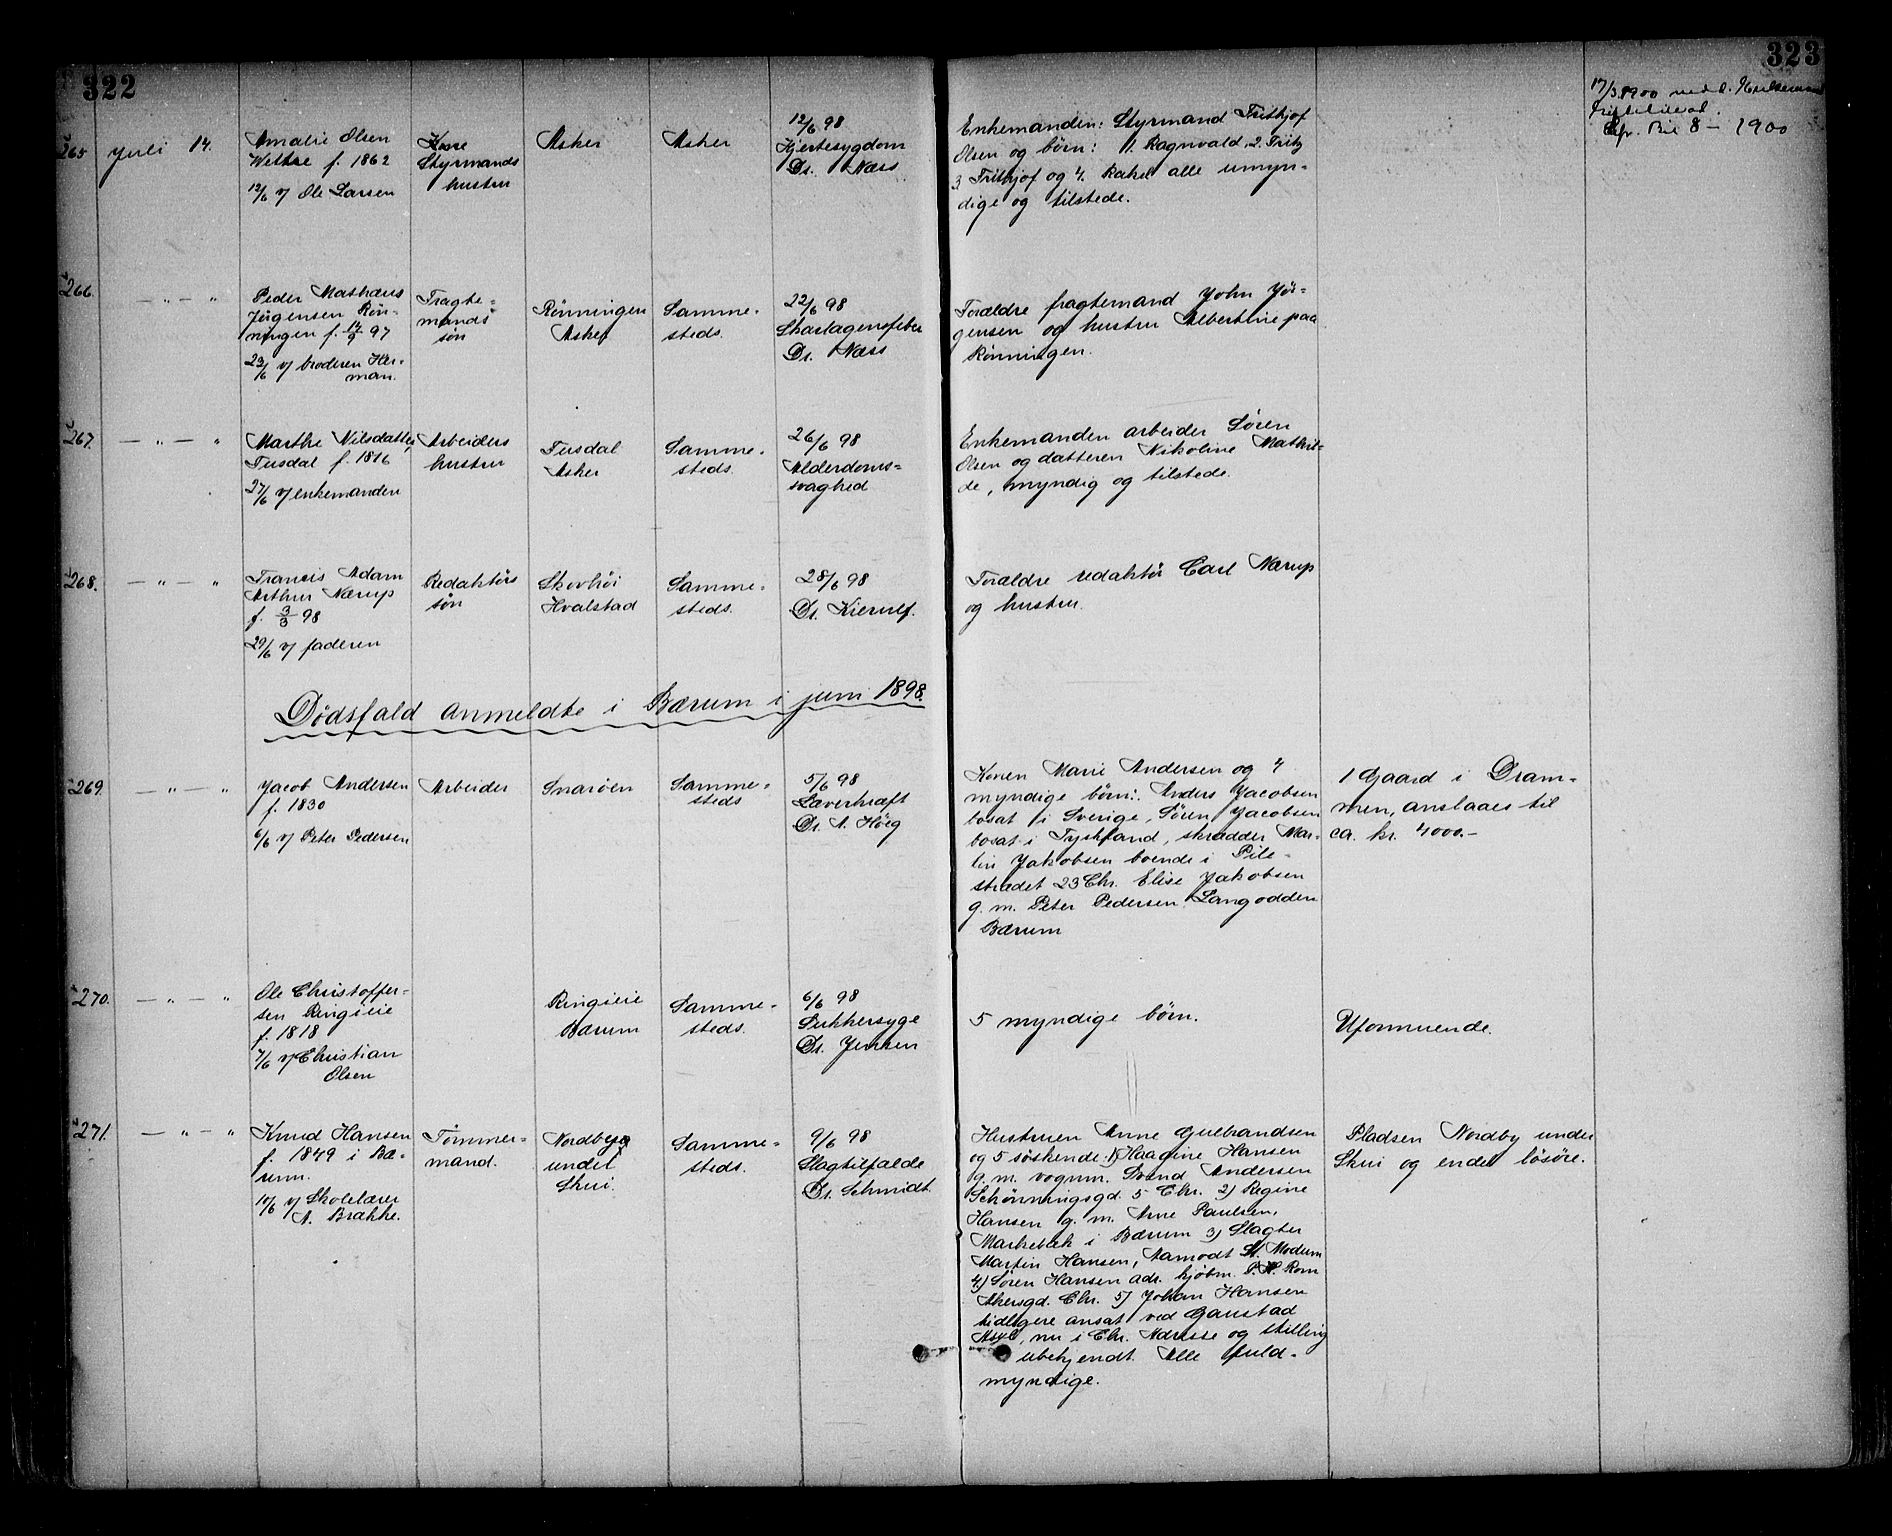 322
323
17/3 1900 medd.
Cfr. Bil 8 - 1900
265 Juli 14.
Amalie Olsen
Wettre f. 1862
12/6 v/ Ole Larsen
Kone
Styrmands
hustru
Asker
Asker
12/6 98
Hjertesygdom
Dr. Næss
Enkemanden: Styrmand Frithjof
Olsen og børn: 1. Ragnvald, 2. Fritz
3 Frithjof og 4. Rakel alle umyn-
dige og tilstede.
266. — " — "
Peder Mathæus
Jørgensen Røn-
ningen f. 14/9 97
23/6 v/ broderen Her-
man.
Fragte-
mands
søn
Rønningen
Asker
Samme-
steds.
22/6 98
Skarlagensfeber
Dr. Næss
Forældre fragtemand John Jør-
gensen og hustru Albertine paa
Rønningen.
267. — " — "
Marthe Nilsdatter
Tusdal f. 1816
27/6 v/ enkemanden
Arbeiders
hustru
Tusdal
Asker
Samme-
steds.
26/6 98
Alderdoms-
svaghed
Enkemanden arbeider Søren
Olsen og datteren Nikoline Mathil-
de, myndig og tilstede.
268. — " — "
Francis Adam
Arthur Nærup
f. 3/3 98
29/6 v/ faderen
Redaktørs
søn
Skovhøi
Hvalstad
Samme-
steds.
28/6 98
Dr. Kierulf.
Forældre redaktør Carl Nærup
og hustru.
Dødsfald anmeldte i Bærum i juni 1898.
269. — " — "
Jacob Andersen
f. 1830
6/6 v/ Peter Pedersen
Arbeider
Snarøen
Samme-
steds
5/6 98
Laverkræft
Dr. A. Høeg
Konen Marie Andersen og 4
myndige børn: Anders Jacobsen
bosat i Sverige, Søren Jacobsen
bosat i Tyskland, skrædder Mar-
tin Jakobsen boende i Pile-
strædet 23 Chr. Elise Jakobsen
g. m. Peter Pedersen Langodden
Bærum
1 Gaard i Dram-
men, anslaaes til
ca. kr. 4000.-
270. — " — "
Ole Christoffer-
sen Ringieie
f. 1818
7/6 v/ Christian
Olsen
Ringieie
Bærum
Samme-
steds.
6/6 98
Sukkersyge
Dr. Jensen
5 myndige børn.
Uformuende.
271. — " — "
Knud Hansen
f. 1849 i Bæ-
rum.
10/6 v/ Skolelærer
A. Brække.
Tømmer-
mand.
Nordby
under
Skui.
Samme-
steds.
9/6 98
Slagtilfælde
Dr. Schmidt.
Hustruen Anne Gulbrandsen
og 5 søskende: 1) Haagine Hansen
g. m. vognm. Svend Andersen
Schønningsgd. 5 Chr. 2) Regine
Hansen g. m. Arne Paulsen,
Markebæk i Bærum 3) Slagter
Martin Hansen, Aamodt St. Modum
4) Søren Hansen adr. kjøbm. P. H. Rom
Akersgd. Chr. 5) Johan Hansen
tidligere ansat ved Gaustad
Asyl, nu i Chr. Adresse og stilling
ubekjendt. Alle fuld-
myndige.
Pladsen Nordby under
Skui og endel løsøre.